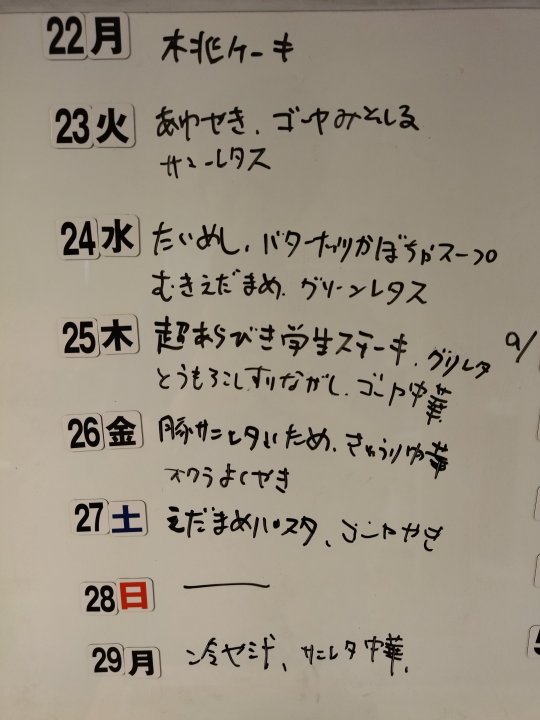 22 月 桃ケーキ
23 火 あゆやき、ゴーヤみそしる
サニーレタス
24 水 たいめし、バターナッツかぼちゃスープ
むきえだまめ、グリーンレタス
25 木 超あらびき学生ステーキ、グリレタ
とうもろこしすりながし、ゴーヤ中華
26 金 豚サニレタいため、きゅうり中華
オクラよくやき
27 土 えだまめパスタ、ゴーヤやき
28 日
29 月 冷や汁、サニレタ中華、